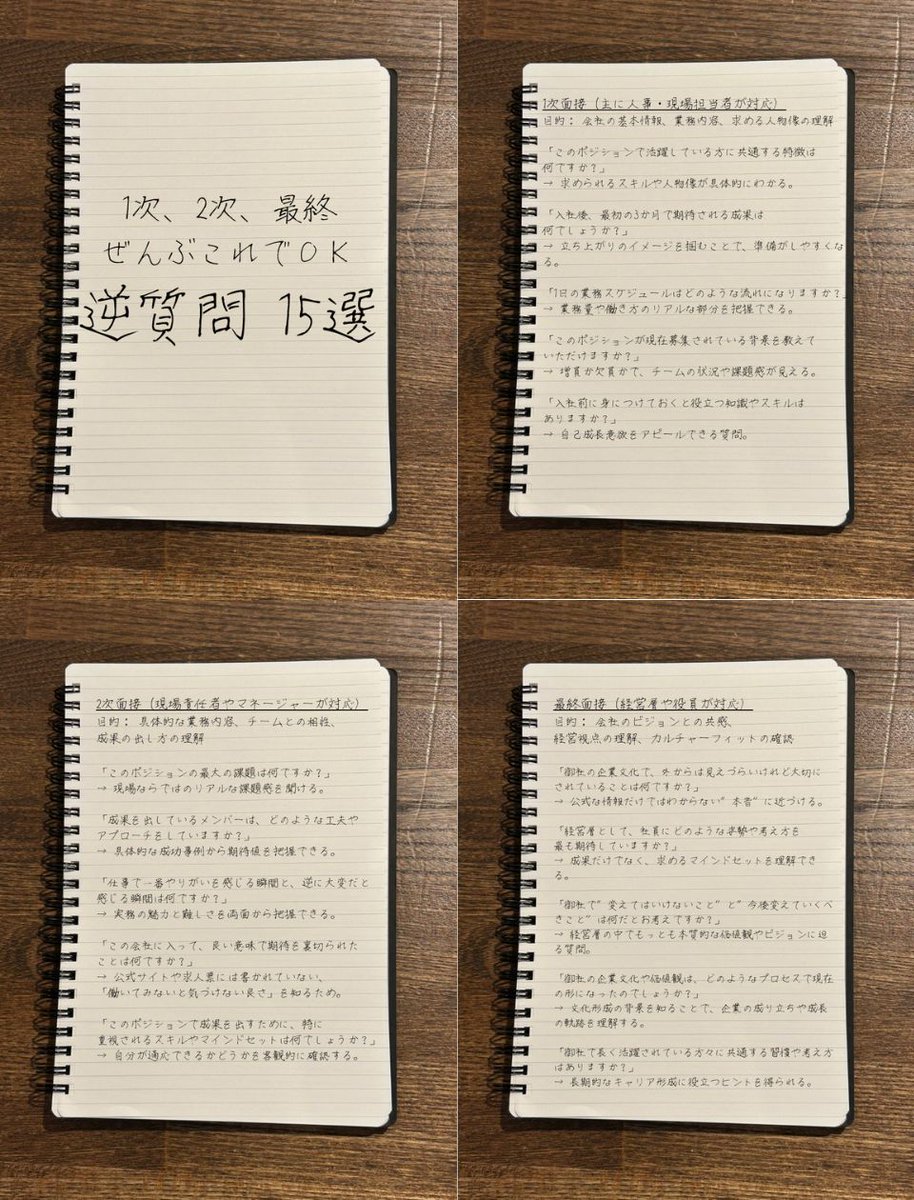 1次、2次、最終
ぜんぶこれでOK
逆質問 15選
1次面接（主に人事・現場担当者が対応）
目的： 会社の基本情報、業務内容、求める人物像の理解
「このポジションで活躍している方に共通する特徴は
何ですか？」
→ 求められるスキルや人物像が具体的にわかる。
「入社後、最初の3か月で期待される成果は
何でしょうか？」
→ 立ち上がりのイメージを掴むことで、準備がしやすくな
る。
「1日の業務スケジュールはどのような流れになりますか？」
→ 業務量や働き方のリアルな部分を把握できる。
「このポジションが現在募集されている背景を教えて
いただけますか？」
→ 増員か欠員かで、チームの状況や課題感が見える。
「入社前に身につけておくと役立つ知識やスキルは
ありますか？」
→ 自己成長意欲をアピールできる質問。
2次面接（現場責任者やマネージャーが対応）
目的： 具体的な業務内容、チームとの相性、
成果の出し方の理解
「このポジションの最大の課題は何ですか？」
→ 現場ならではのリアルな課題感を聞ける。
「成果を出しているメンバーは、どのような工夫や
アプローチをしていますか？」
→ 具体的な成功事例から期待値を把握できる。
「仕事で一番やりがいを感じる瞬間と、逆に大変だと
感じる瞬間は何ですか？」
→ 実務の魅力と難しさを両面から把握できる。
「この会社に入って、良い意味で期待を裏切られた
ことは何ですか？」
→ 公式サイトや求人票には書かれていない、
「働いてみないと気づけない良さ」を知るため。
「このポジションで成果を出すために、特に
重視されるスキルやマインドセットは何でしょうか？」
→ 自分が適応できるかどうかを客観的に確認する。
最終面接（経営層や役員が対応）
目的： 会社のビジョンとの共感、
経営視点の理解、カルチャーフィットの確認
「御社の企業文化で、外からは見えづらいけれど大切に
されていることは何ですか？」
→ 公式な情報だけではわからない“本音”に近づける。
「経営層として、社員にどのような姿勢や考え方を
最も期待していますか？」
→ 成果だけでなく、求めるマインドセットを理解でき
る。
「御社で“変えてはいけないこと”と“今後変えていくべ
きこと”は何だとお考えですか？」
→ 経営層の中でもっとも本質的な価値観やビジョンに迫
る質問。
「御社の企業文化や価値観は、どのようなプロセスで現在
の形になったのでしょうか？」
→ 文化形成の背景を知ることで、企業の成り立ちや成長
の軌跡を理解する。
「御社で長く活躍されている方々に共通する習慣や考え方
はありますか？」
→ 長期的なキャリア形成に役立つヒントを得られる。